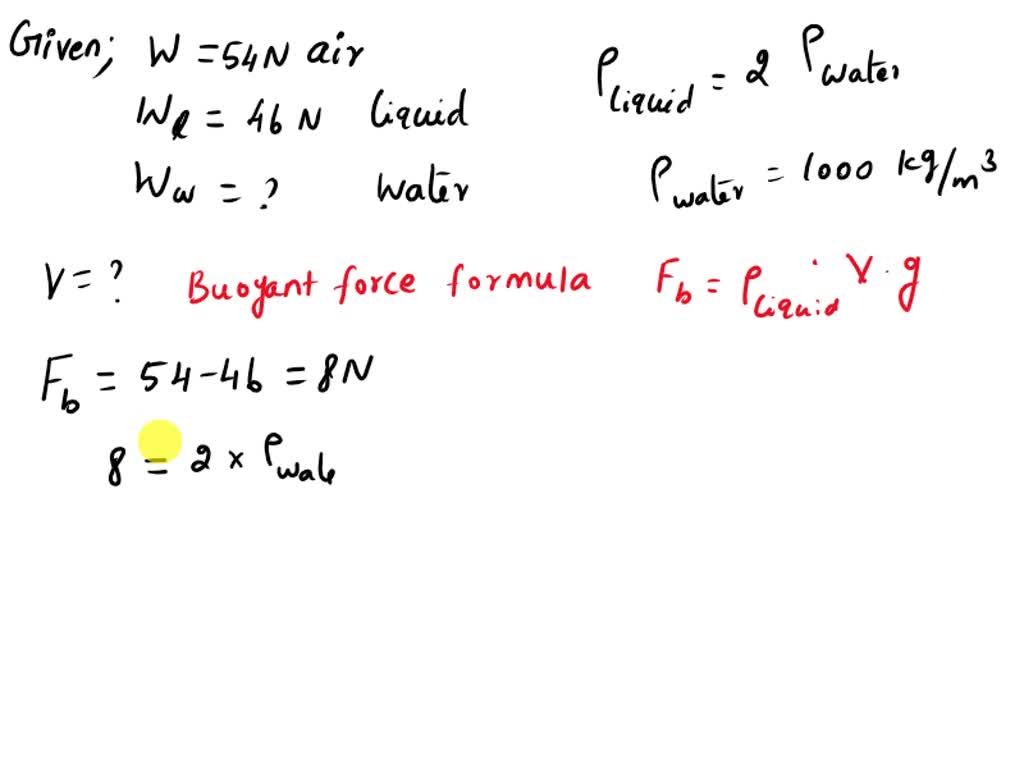 Given; W = 54N air
W_l = 46 N liquid
W_w = ? water
ρ_liquid = 2 ρ_water
ρ_water = 1000 kg/m³
V = ? Buoyant force formula F_b = ρ_liquid · V · g
F_b = 54 - 46 = 8N
8 = 2 × ρ_wate